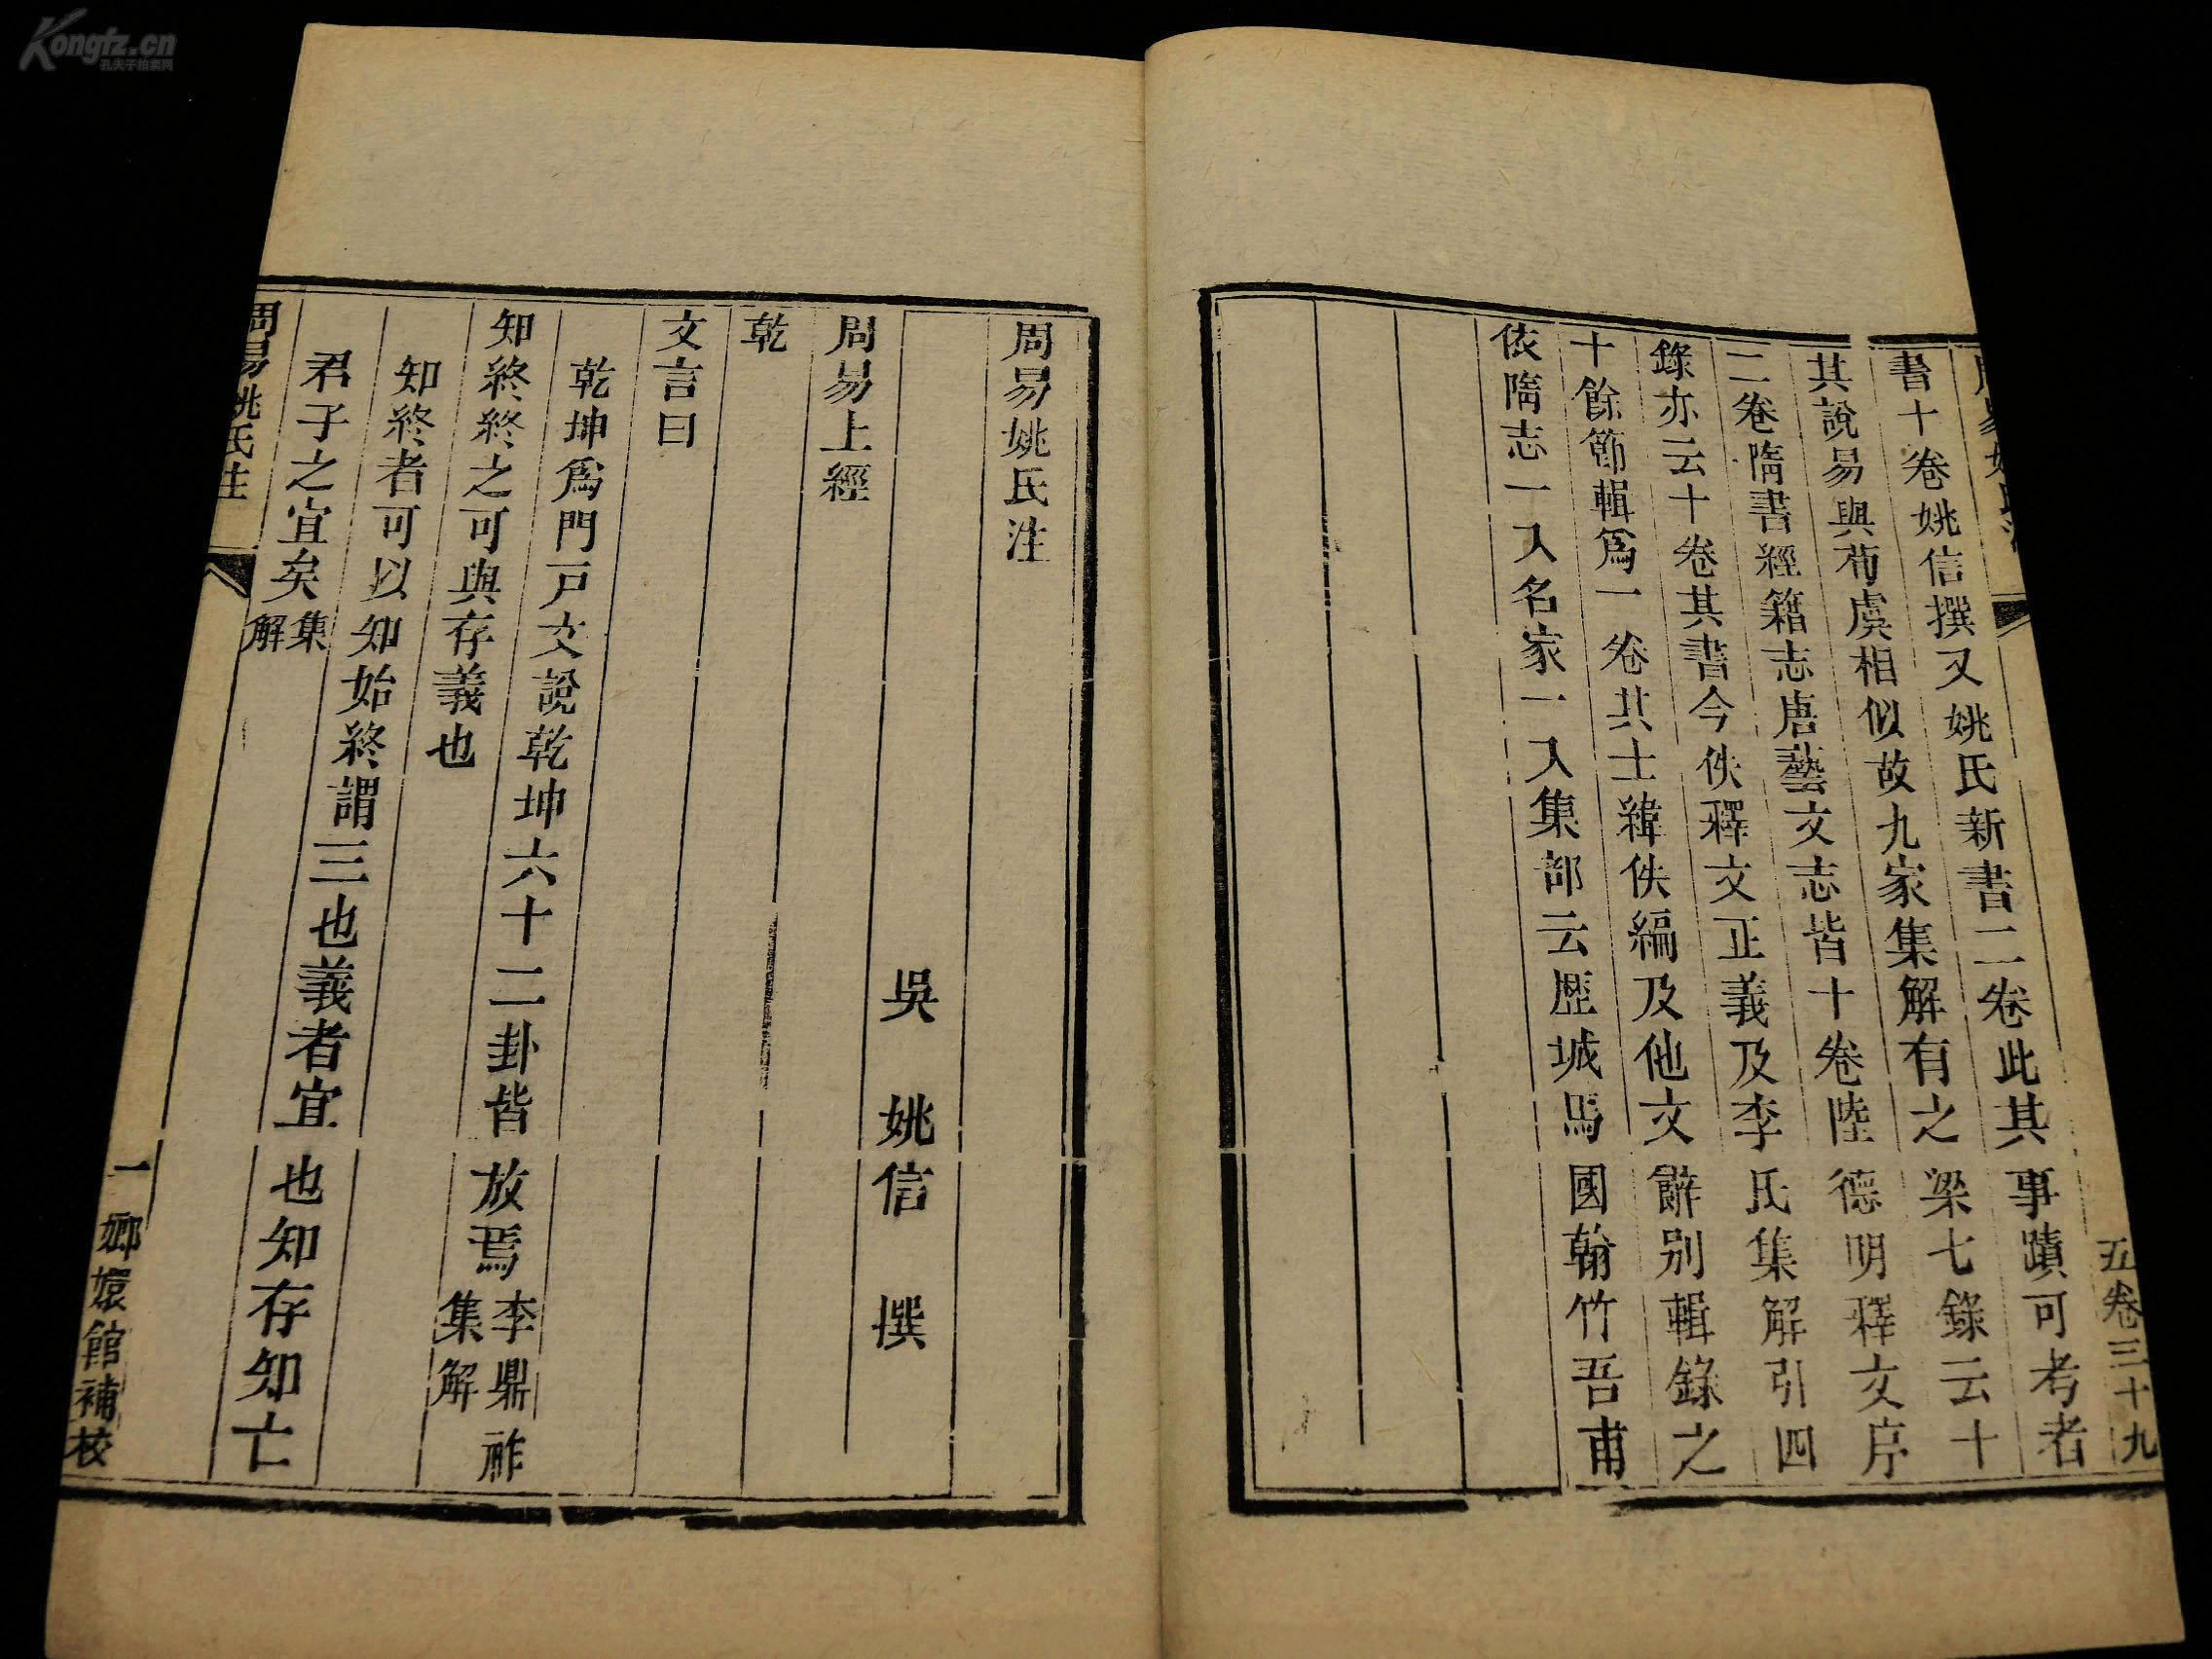 書十卷姚信撰又姚氏新書二卷此其事蹟可考者
其說易與荀虞相似故九家集解有之梁七錄云十
二卷隋書經籍志唐藝文志皆十卷陸德明釋文序
錄亦云十卷其書今佚釋文正義及李氏集解引四
十餘節輯爲一卷其士緯佚編及他文辭別輯錄之
依隋志一入名家一入集部云歷城馬國翰竹吾甫
五卷三十九
周易姚氏注
吳 姚信 撰
周易上經
乾
文言曰
乾坤爲門戶文說乾坤六十二卦皆放焉李鼎祚集解
知終終之可與存義也
知終者可以知始終謂三也義者宜也知存知亡
君子之宜矣集解
周易姚氏注
一 嫏嬛館補校
Kongfz.cn
孔夫子拍卖网